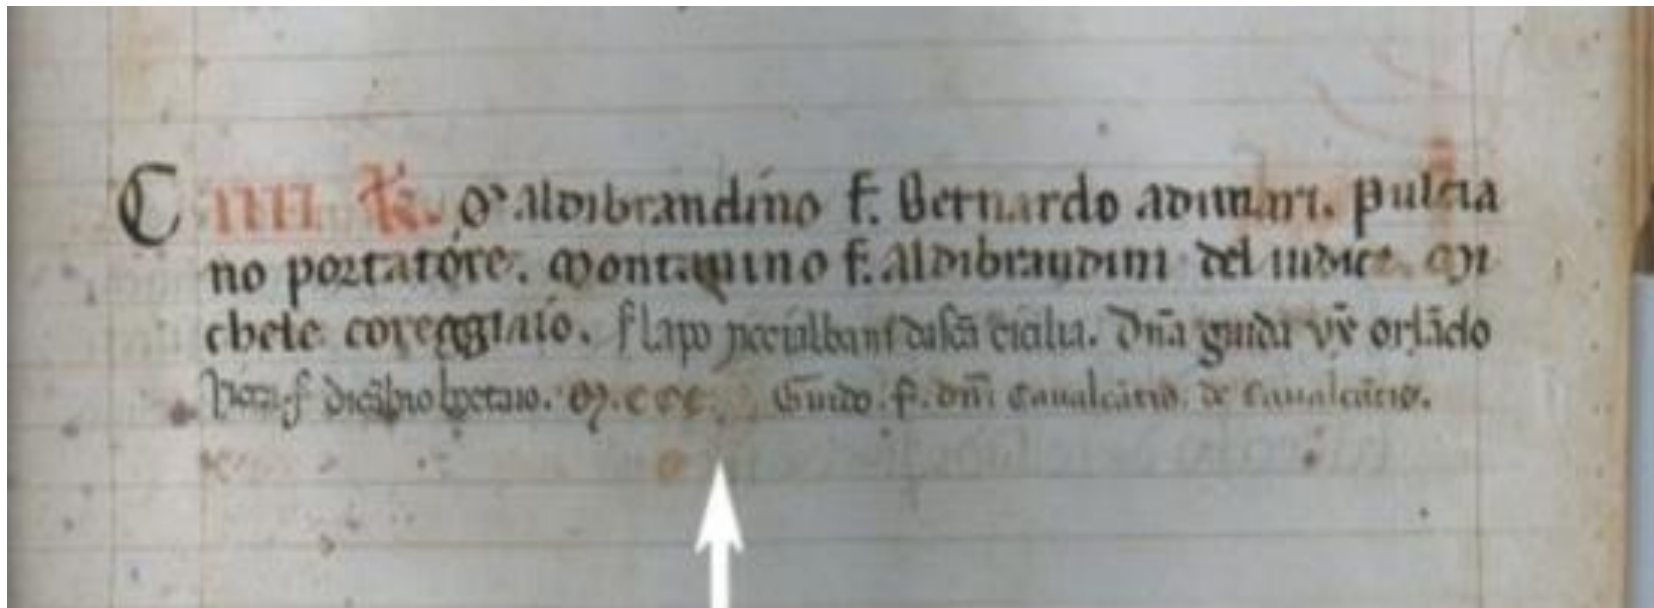 C IIII. K. O aldibrandino f. Bernardo adimari. pulcia
no portatore. Montanino f. Aldibrandini del iudice. Mi
chele coreggiaio. f lapo dasca cicilia. Dña guida vx̄ orlādo
M.CCC. Guido. f. dñi Caualcātis. de Caualcātis.